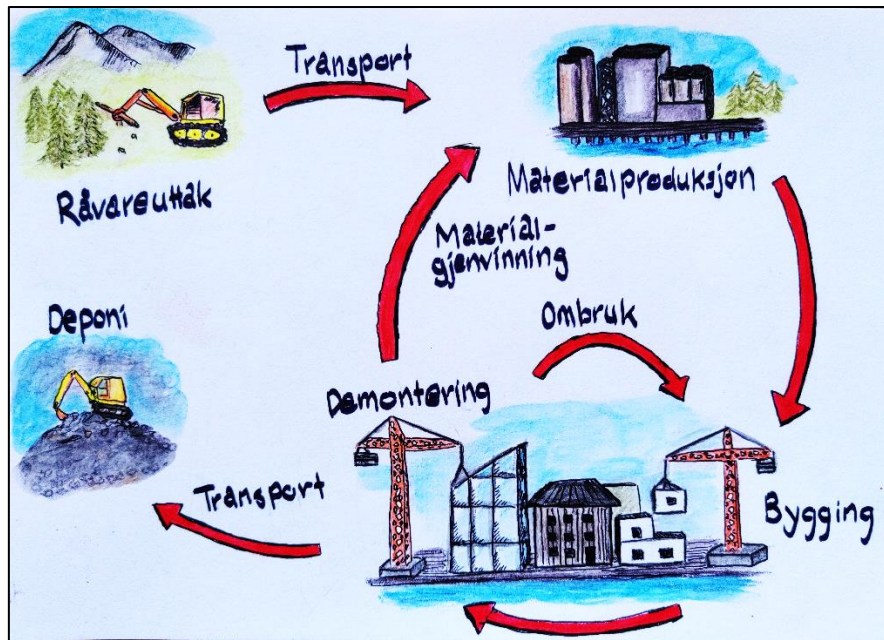 Transport
Råvareuttak
Materialproduksjon
Material-
gjenvinning
Deponi
Ombruk
Demontering
Transport
Bygging